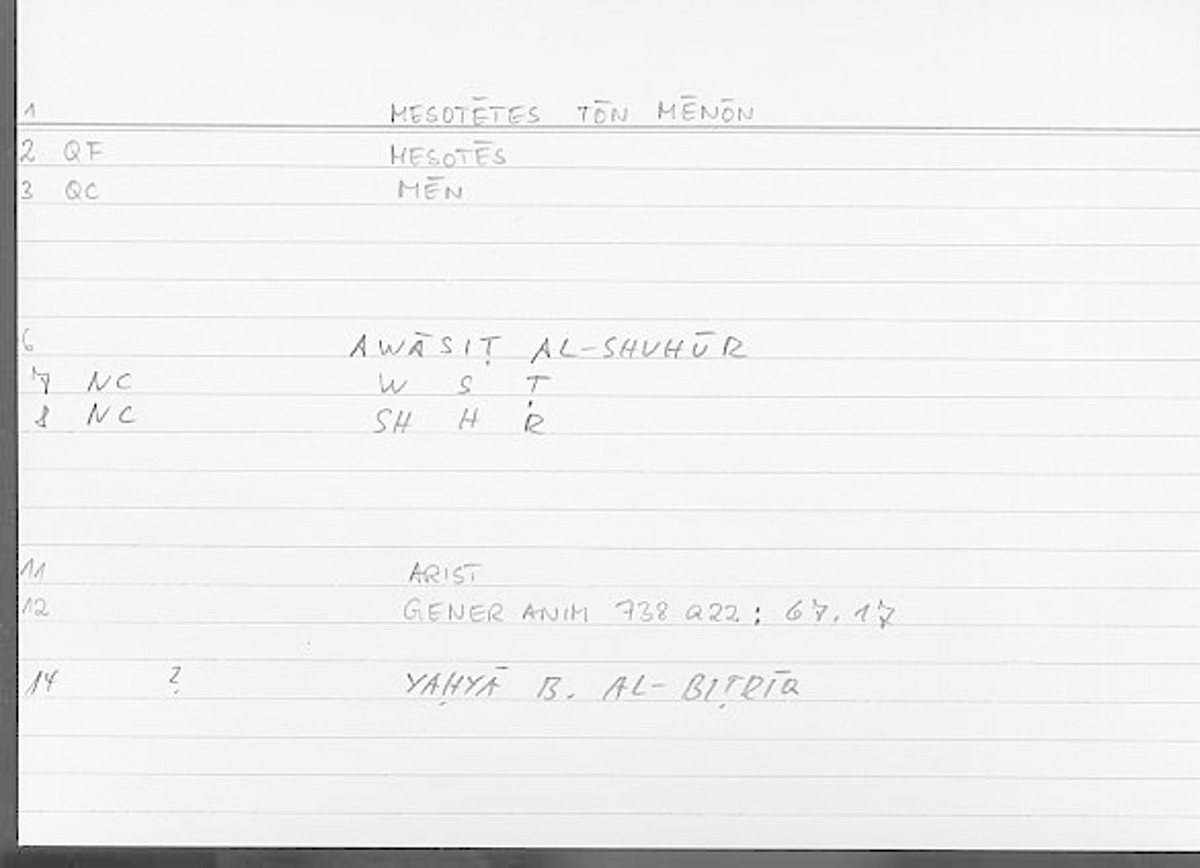 1 MESOTĒTES TŌN MĒNŌN
2 QF MESOTĒS
3 QC MĒN
6 AWĀSIṬ AL-SHUHŪR
7 NC W S Ṭ
8 NC SH H R
11 ARIST
12 GENER ANIM 738 a22 : 67.17
14 ? YAḤYĀ B. AL-BIṬRĪQ